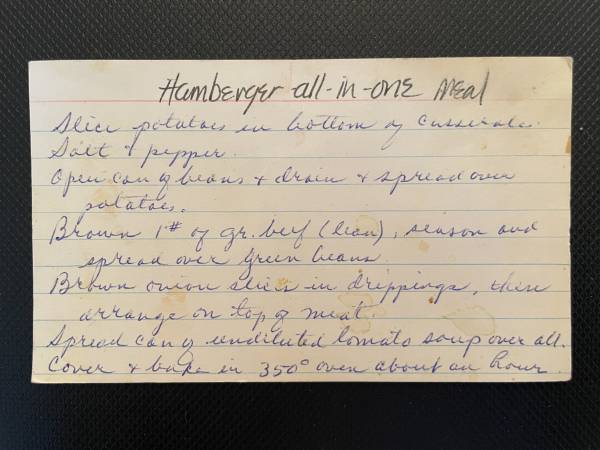 Hamberger all-in-one meal
Slice potatoes in bottom of casserole.
Salt & pepper.
Open can of beans & drain & spread over
potatoes.
Brown 1# of gr. beef (lean), season and
spread over green beans.
Brown onion slices in drippings, then
arrange on top of meat.
Spread can of undiluted tomato soup over all.
Cover & bake in 350° oven about an hour.